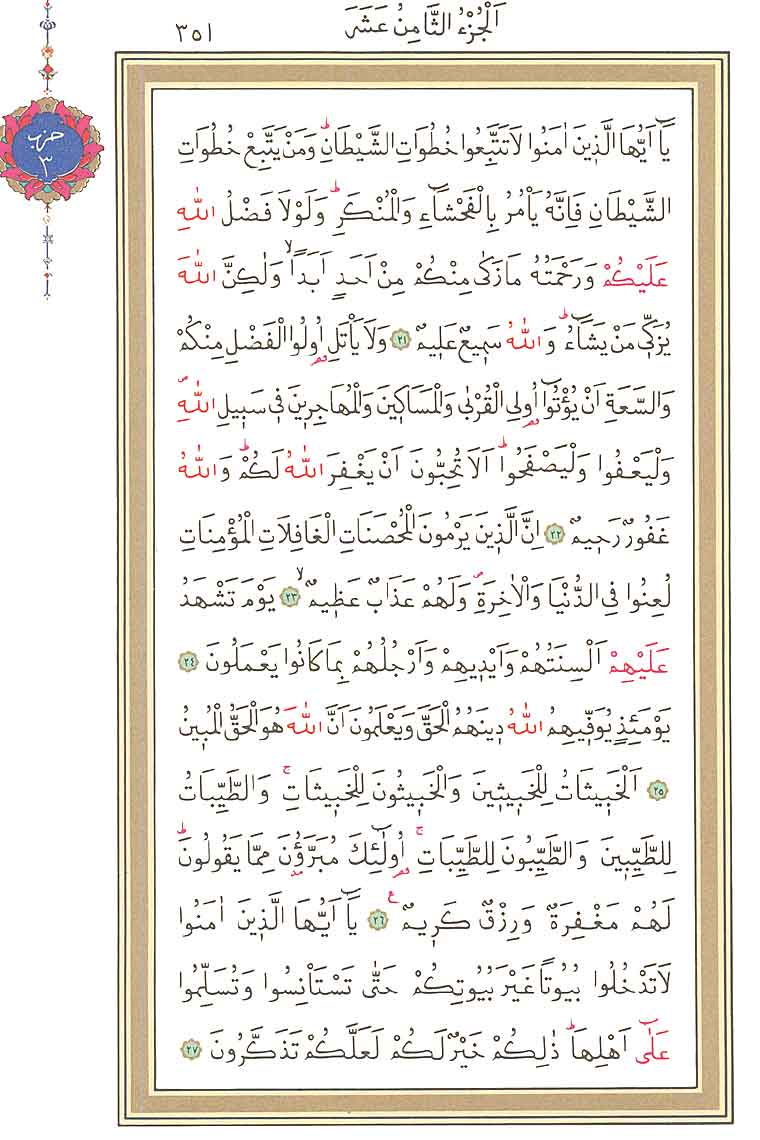 اَلْجُزْءُ الثَّامِنُ عَشَرَ
٣٥١
حزب
٣
يَٓا اَيُّهَا الَّذٖينَ اٰمَنُوا لَا تَتَّبِعُوا خُطُوَاتِ الشَّيْطَانِؕ وَمَنْ يَتَّبِعْ خُطُوَاتِ
الشَّيْطَانِ فَاِنَّهُ يَاْمُرُ بِالْفَحْشَٓاءِ وَالْمُنْكَرِؕ وَلَوْلَا فَضْلُ اللّٰهِ
عَلَيْكُمْ وَرَحْمَتُهُ مَا زَكٰى مِنْكُمْ مِنْ اَحَدٍ اَبَداًۙ وَلٰكِنَّ اللّٰهَ
يُزَكّٖي مَنْ يَشَٓاءُؕ وَاللّٰهُ سَمٖيعٌ عَلٖيمٌ ﴿٢١﴾ وَلَا يَاْتَلِ اُولُوا الْفَضْلِ مِنْكُمْ
وَالسَّعَةِ اَنْ يُؤْتُٓوا اُولِي الْقُرْبٰى وَالْمَسَاكٖينَ وَالْمُهَاجِرٖينَ فٖي سَبٖيلِ اللّٰهِۖ
وَلْيَعْفُوا وَلْيَصْفَحُواؕ اَلَا تُحِبُّونَ اَنْ يَغْفِرَ اللّٰهُ لَكُمْؕ وَاللّٰهُ
غَفُورٌ رَحٖيمٌ ﴿٢٢﴾ اِنَّ الَّذٖينَ يَرْمُونَ الْمُحْصَنَاتِ الْغَافِلَاتِ الْمُؤْمِنَاتِ
لُعِنُوا فِي الدُّنْيَا وَالْاٰخِرَةِۖ وَلَهُمْ عَذَابٌ عَظٖيمٌۙ ﴿٢٣﴾ يَوْمَ تَشْهَدُ
عَلَيْهِمْ اَلْسِنَتُهُمْ وَاَيْدٖيهِمْ وَاَرْجُلُهُمْ بِمَا كَانُوا يَعْمَلُونَ ﴿٢٤﴾
يَوْمَئِذٍ يُوَفّٖيهِمُ اللّٰهُ دٖينَهُمُ الْحَقَّ وَيَعْلَمُونَ اَنَّ اللّٰهَ هُوَ الْحَقُّ الْمُبٖينُ
﴿٢٥﴾ اَلْخَبٖيثَاتُ لِلْخَبٖيثٖينَ وَالْخَبٖيثُونَ لِلْخَبٖيثَاتِۚ وَالطَّيِّبَاتُ
لِلطَّيِّبٖينَ وَالطَّيِّبُونَ لِلطَّيِّبَاتِۚ اُو۬لٰٓئِكَ مُبَرَّؤُ۫نَ مِمَّا يَقُولُونَؕ
لَهُمْ مَغْفِرَةٌ وَرِزْقٌ كَرٖيمٌ ﴿٢٦﴾ يَٓا اَيُّهَا الَّذٖينَ اٰمَنُوا
لَا تَدْخُلُوا بُيُوتاً غَيْرَ بُيُوتِكُمْ حَتّٰى تَسْتَاْنِسُوا وَتُسَلِّمُوا
عَلٰٓى اَهْلِهَاؕ ذٰلِكُمْ خَيْرٌ لَكُمْ لَعَلَّكُمْ تَذَكَّرُونَ ﴿٢٧﴾